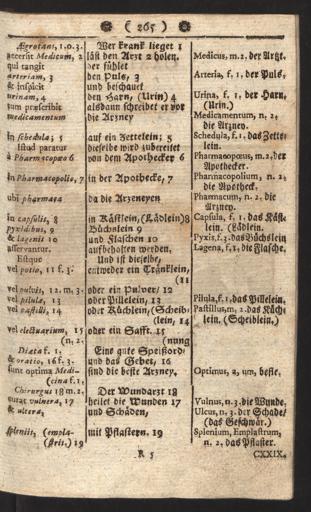 ( 265 )
Ægrotans, 1.0.3.
accersit Medicum, 2
qui tangit
arteriam, 3
& inspicit
urinam, 4
tum præscribit
medicamentum
in schedula; 5
Istud paratur
à Pharmacopæo 6
in Pharmacopolio, 7
ubi pharmaca
in capsulis, 8
pyxidibus, 9
& lagenis 10
asservantur.
Estque
vel potio, 11 f. 3.
vel pulvis, 12. m. 3.
vel pilulæ, 13
vel pastilli, 14
vel electuarium, 15
(n, 2.
Diæta f. 1.
& oratio, 16 f. 3.
sunt optima Medi-
(cina f. 1.
Chirurgus 18 m. 2.
curat vulnera, 17
& ulcera,
spleniis, (empla-
(stris.) 19
Wer kranck lieget 1
läst den Artzt 2 holen.
der fühlet
den Puls, 3
und beschauet
den Harn, (Urin) 4
alsdann schreibet er vor
die Artzney
auf ein Zettelein; 5
dieselbe wird zubereitet
von dem Apothecker 6
in der Apothecke, 7
da die Artzeneyen
in Kästlein, (Lädlein) 8
Büchslein 9
und Flaschen 10
aufbehalten werden.
Und ist dieselbe,
entweder ein Tränklein,
(11
oder ein Pulver/ 12
oder Pillelein, 13
oder Küchlein, (Scheib-
(lein, 14
oder ein Safft. 15
(nung
Eine gute Speißord-
und das Gebet, 16
sind die beste Artzney.
Der Wundartzt 18
heilet die Wunden 17
und Schäden,
mit Pflastern. 19
Medicus, m. 2. der Artzt.
Arteria, f. 1. der Puls,
Urina, f. 1. der Harn,
(Urin.)
Medicamentum, n 2,
die Artzney.
Schedula, f. 1. das Zette-
lein.
Pharmacopœus, m. 2. der
Apothecker.
Pharmacopolium, n 2.
die Apotheck.
Pharmacum, n. 2. die
Artzney.
Capsula, f. 1. das Käst-
lein. (Lädlein.
Pyxis, f. 3. das Büchslein
Lagena, f. 1. die Flasche.
Pilula, f. 1. das Pillelein.
Pastillus, m. 2. das Küch-
lein. (Scheiblein.)
Optimus, a, um, beste.
Vulnus, n. 3. die Wunde.
Ulcus, n. 3. der Schade/
(das Geschwär.)
Splenium, Emplastrum,
n. 2. das Pflaster.
R 5
CXXIX.